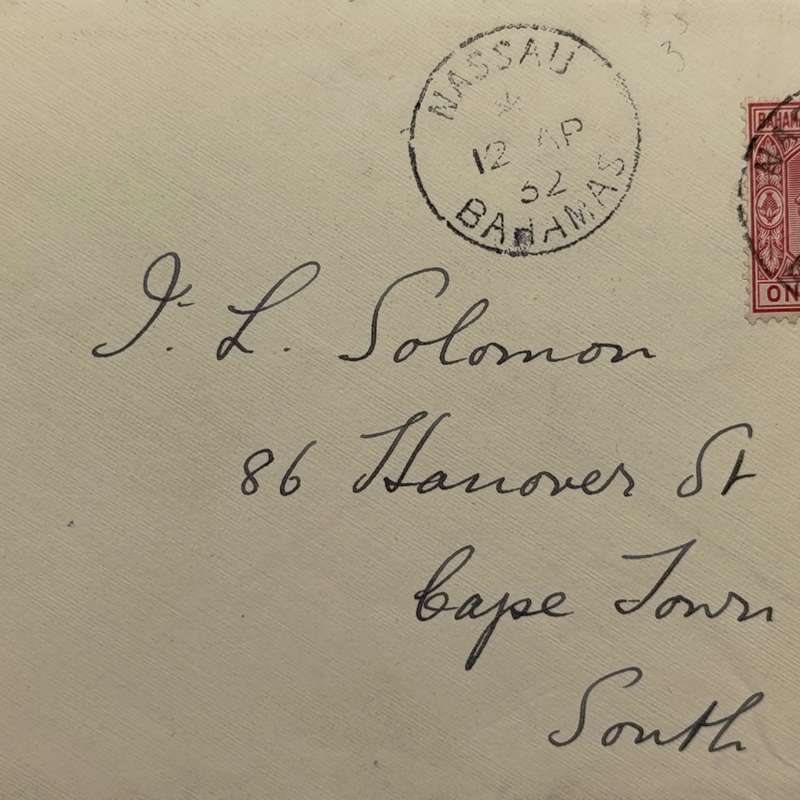 3
NASSAU
12 AP
32
BAHAMAS
BAHAMA
NAS
ON
I. L. Solomon
86 Hanover St
Cape Town
South